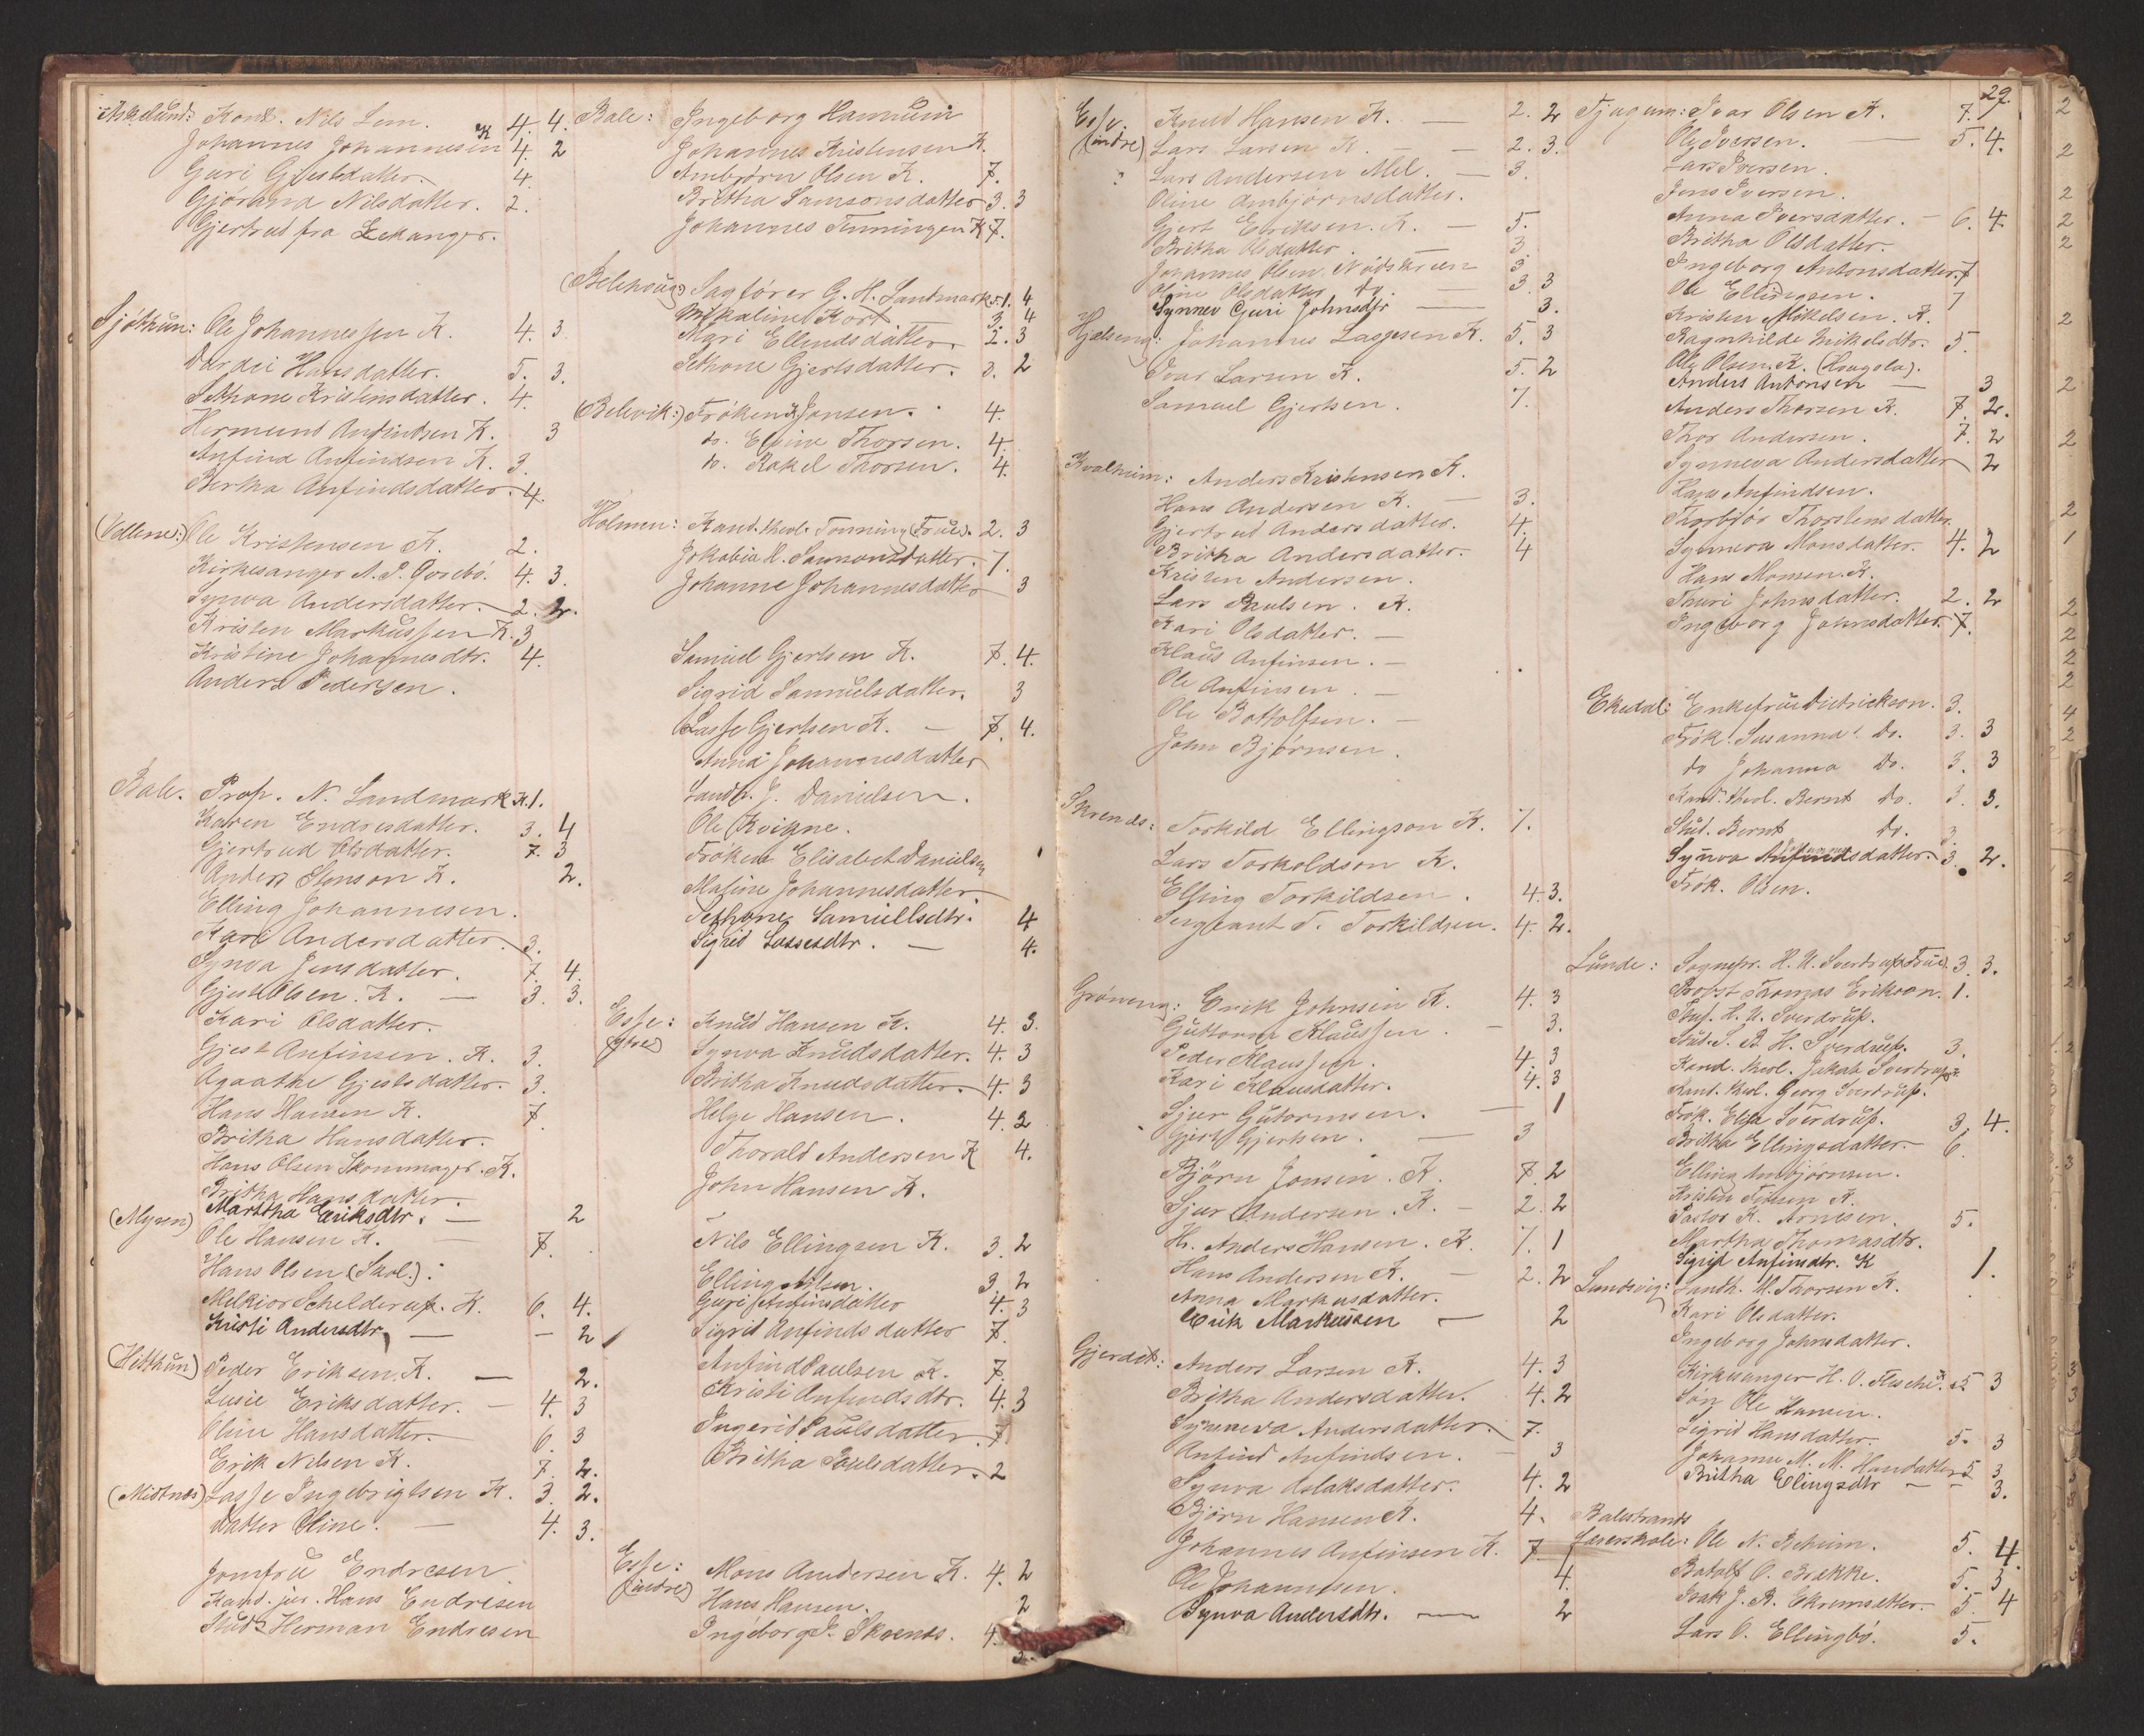 Askelund: Kand. Nils Lem. K 4. 4.
Johannes Johannesen 4. 2
Guri Gjestsdatter. 4.
Gjørand Nilsdatter. 2.
Gjertrud fra Lekanger.
Sjøthun: Ole Johannessen K. 4. 3.
Dardei Hansdatter. 5. 3.
Sethone Kristensdatter. 4.
Hermund Anfindsen K. 3
Anfind Anfindsen K. 3.
Bertha Anfindsdatter. 4.
Ole Kristensen K. 2.
Kirkesanger A. P. 4. 3.
Synva Andersdatter. 2. 2.
Kristen Markussen K. 3
Kristine Johannesdtr. 4.
Anders Pedersen.
Bale. Prop. N. Landmark K. 1.
Karen Endresdatter. 3. 4
Gjertrud Olsdatter. 7. 3
Anders K. 2.
Elling Johannesen.
Kari Andersdatter. 3.
Synva Jensdatter. 7. 4.
Gjest Olsen. K. — 3. 3.
Kari Olsdatter.
Gjest Anfinsen. K. 3.
Agaathe Gjestsdatter. 3.
Hans Hansen K. 7.
Britha Hansdatter.
Hans Olsen Skommager. K.
Britha Hansdatter.
Marttha Eriksdtr. — 2
(Myren) Ole Hansen K. — 7.
Hans Olsen (Skol.).
Melkior Schelderup. K. 6. 4.
Kristi Andersdtr. — — 2
(Hitthun) Peder Eriksen. K. — 2.
Lusie Eriksdatter. — 4. 3
Oline Hansdatter. 6. 3
Erik Nilsen K. 7. 2.
(Mistnes) Lasse Ingebrigtsen K. 3. 2.
Datter Oline. — 4. 3.
Jomfru Endresen
Kand. jur. Hans Endresen
Stud. Herman Endresen
Bale: Ingeborg
Johannes Kristensen K.
Ambrørn Olsen K. 7.
Brittha Samsonsdatter 3. 3
Johannes Tenningen K 7.
(Belehaug:) Sagfører G. H. Landmark K. 1. 4
Mikaline Kort 3. 4
Mari Ellendsdatter. 2. 3
Sethone Gjertsdatter. 3. 2
(Belevik:) Frøken Jansen. 4.
do. Eline Thorsen. 4.
do. Rakel Thorsen. 4.
Holmen: Kand. theol. Tonning (Frue). 2. 3
Jakobia H. Samsonsdatter. 7.
Johanne Johannesdatter 3
Samuel Gjertsen K. 7. 4.
Sigrid Samuelsdatter. 3
Lasse Gjertsen K. — 7. 4.
Anna Johannesdatter
Landh. J. Danielsen.
Ole Kvigne.
Frøken Elisabet Danielsen
Maline Johannesdatter
Sethone Samuellsdtr. 4
Sigrid Lassesdtr. — 4.
Esse: (ytre) Knud Hansen K. 4. 3.
Synva Knudsdatter. 4. 3
Britha Knudsdatter. 4. 3
Helge Hansen. 4. 2
Thorald Andersen K 4.
John Hansen K.
Nils Ellingsen K. 3. 2
Elling Nilsen. 3. 2
Guri Anfinsdatter 4. 3
Sigrid Anfindsdatter 7.
Anfind Paulsen K. 7.
Kristi Anfindsdtr. 4. 3
Ingerid Paulsdatter. 7
Britha Paulsdatter. 2
Esse: (indre) Mons Andersen K. 4. 2
Hans Hansen. 2
Ingeborg J. Skrends. 4.
29.
Esse. (indre) Knud Hansen K. — 2. 2
Lars Larsen K. — 2. 3.
Lars Andersen Mel. — 3.
Oline Ambjørnsdatter.
Gjert Eriksen. K. — 5.
Britha Olsdatter. 3
Johannes Olsen Nødstrien 3
Oline Olsdatter do. — 3. 3
Synnev Guri Johnsdtr — 3.
Hjælseng: Johannes Lassesen K. 5. 3
Ivar Larsen K. 5. 2
Samuel Gjertsen. 7.
Kvalheim: Anders Kristensen K.
Hans Andersen K. — 3.
Gjertrud Andersdatter. 4.
Britha Andersdatter. 4
Kristen Andersen.
Lars Paulsen. K.
Kari Olsdatter. —
Klaus Anfinsen. —
Ole Anfinsen. —
Ole Bottolfsen. —
John Bjørnsen.
Skrends: Torkild Ellingson K. 7.
Lars Torkoldson K.
Elling Torkildsen. 4. 3.
Sergeant T. Torkildsen. 4. 2.
Grøneng: Erik Johnsen K. 4. 3
Guttorm Klaussen. — 3.
Peder Klaussen. 4. 3
Kari Klausdatter. 4. 3
Sjur Gutormsen. — 1
Gjert Gjertsen. — 3
Bjørn Jonsen. K. 7. 2
Sjur Andersen. K. — 2. 2
Hr. Anders Hansen. K. 7. 1
Hans Andersen K. — 2. 2
Anna Markusdatter.
Erik Markussen — 2
Gjerdet: Anders Larsen K. 4. 3
Britha Andersdatter. 4. 2
Synneva Andersdatter. 7.
Anfind Anfindsen. — 3
Synva Aslaksdatter. 4. 2
Bjørn Hansen K. 4.
Johannes Anfinsen K. 7
Ole Johannesen. 4.
Synva Andersdtr. — 2
Tjugum: Ivar Olsen K. 7.
Ole Iversen. — 5. 4.
Lars Iversen.
Jens Iversen.
Anna Iversdatter. — 6. 4
Britha Olsdatter.
Ingeborg Antonsdatter. 7
Ole Ellingsen. 7
Kristen Mikkelsen. K.
Ragnhilde Mikelsdtr. 5.
Ole Olsen. K. (Haugsla).
Anders Antonsen — 3
Anders Thorsen K. 7. 2.
Thor Andersen. 7. 2
Synneva Andersdatter 2
Hans Anfindsen.
Thorbjør Thorstensdatter.
Synneva Monsdatter. 4. 2
Hans Monsen. K.
Thuri Johnsdatter. 2. 2
Ingeborg Johnsdatter. 7.
Ekedal: Enkefrue Dietrickson. 3.
Frøk. Susanna Do. 3. 3
do Johanna Do. 3. 3
Kand. theol. Bernt Do. 3. 3.
Stud. Bernt Do. 3.
Synva Anfindsdatter. 3. 2.
Frøk. Olsen.
Lunde: Sognepr. H. U. Sverdrup (Frue). 3. 3.
Provst Thomas Erikson. 1.
H. U. Sverdrup.
Stud. S. B. H. Sverdrup. 3.
Kand. theol. Jakob Sverdrup
Kand. theol. Georg Sverdrup.
Frøk. Elisa Sverdrup. 3. 4.
Britha Ellingsdatter. 6.
Elling Ambjørnsen.
Kristen K.
Pastor K. Arnesen. 5.
Martha Thomasdtr.
Sigrid Anfinsdtr. K 1.
Landsvig: Landh. M. Thorsen K.
Kari Olsdatter.
Ingeborg Johnsdatter.
Kirkesanger H. O. 5 3
Søn Ole Hansen.
Sigrid Hansdatter. 5. 3
Johanne M. M. Hansdatter 5 3
Britha Elingsdtr — — 3.
Balestrands
Lærerskole: Ole N. Reheim. 5. 4.
Botolf O. Brekke. 5. 3
Isak J. R. Ekremsæter. 5. 4
Lars O. Ellingbø. 5.